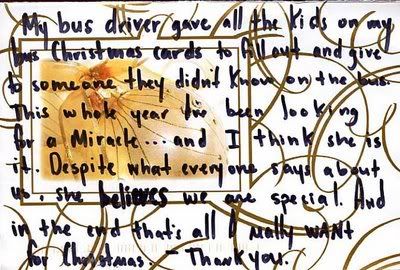 My bus driver gave all the kids on my
bus Christmas cards to fill out and give
to someone they didnt know on the bus.
This whole year I've been looking
for a Miracle...and I think she is
it. Despite what everyone says about
us, she believes we are special. And
in the end that's all I really WANT
for Christmas. - Thank you.